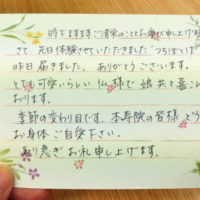 時下ますますご清栄のこととお慶び申し上げ
さて、先日体験させていただきました"つちほとけ"
昨日届きました。ありがとうございます。
とても可愛いらしい仏様で娘共々喜こん
おります。
季節の変わり目です。本寿院の皆様 どう
お身体ご自愛下さい。
取り急ぎお礼申し上げます。